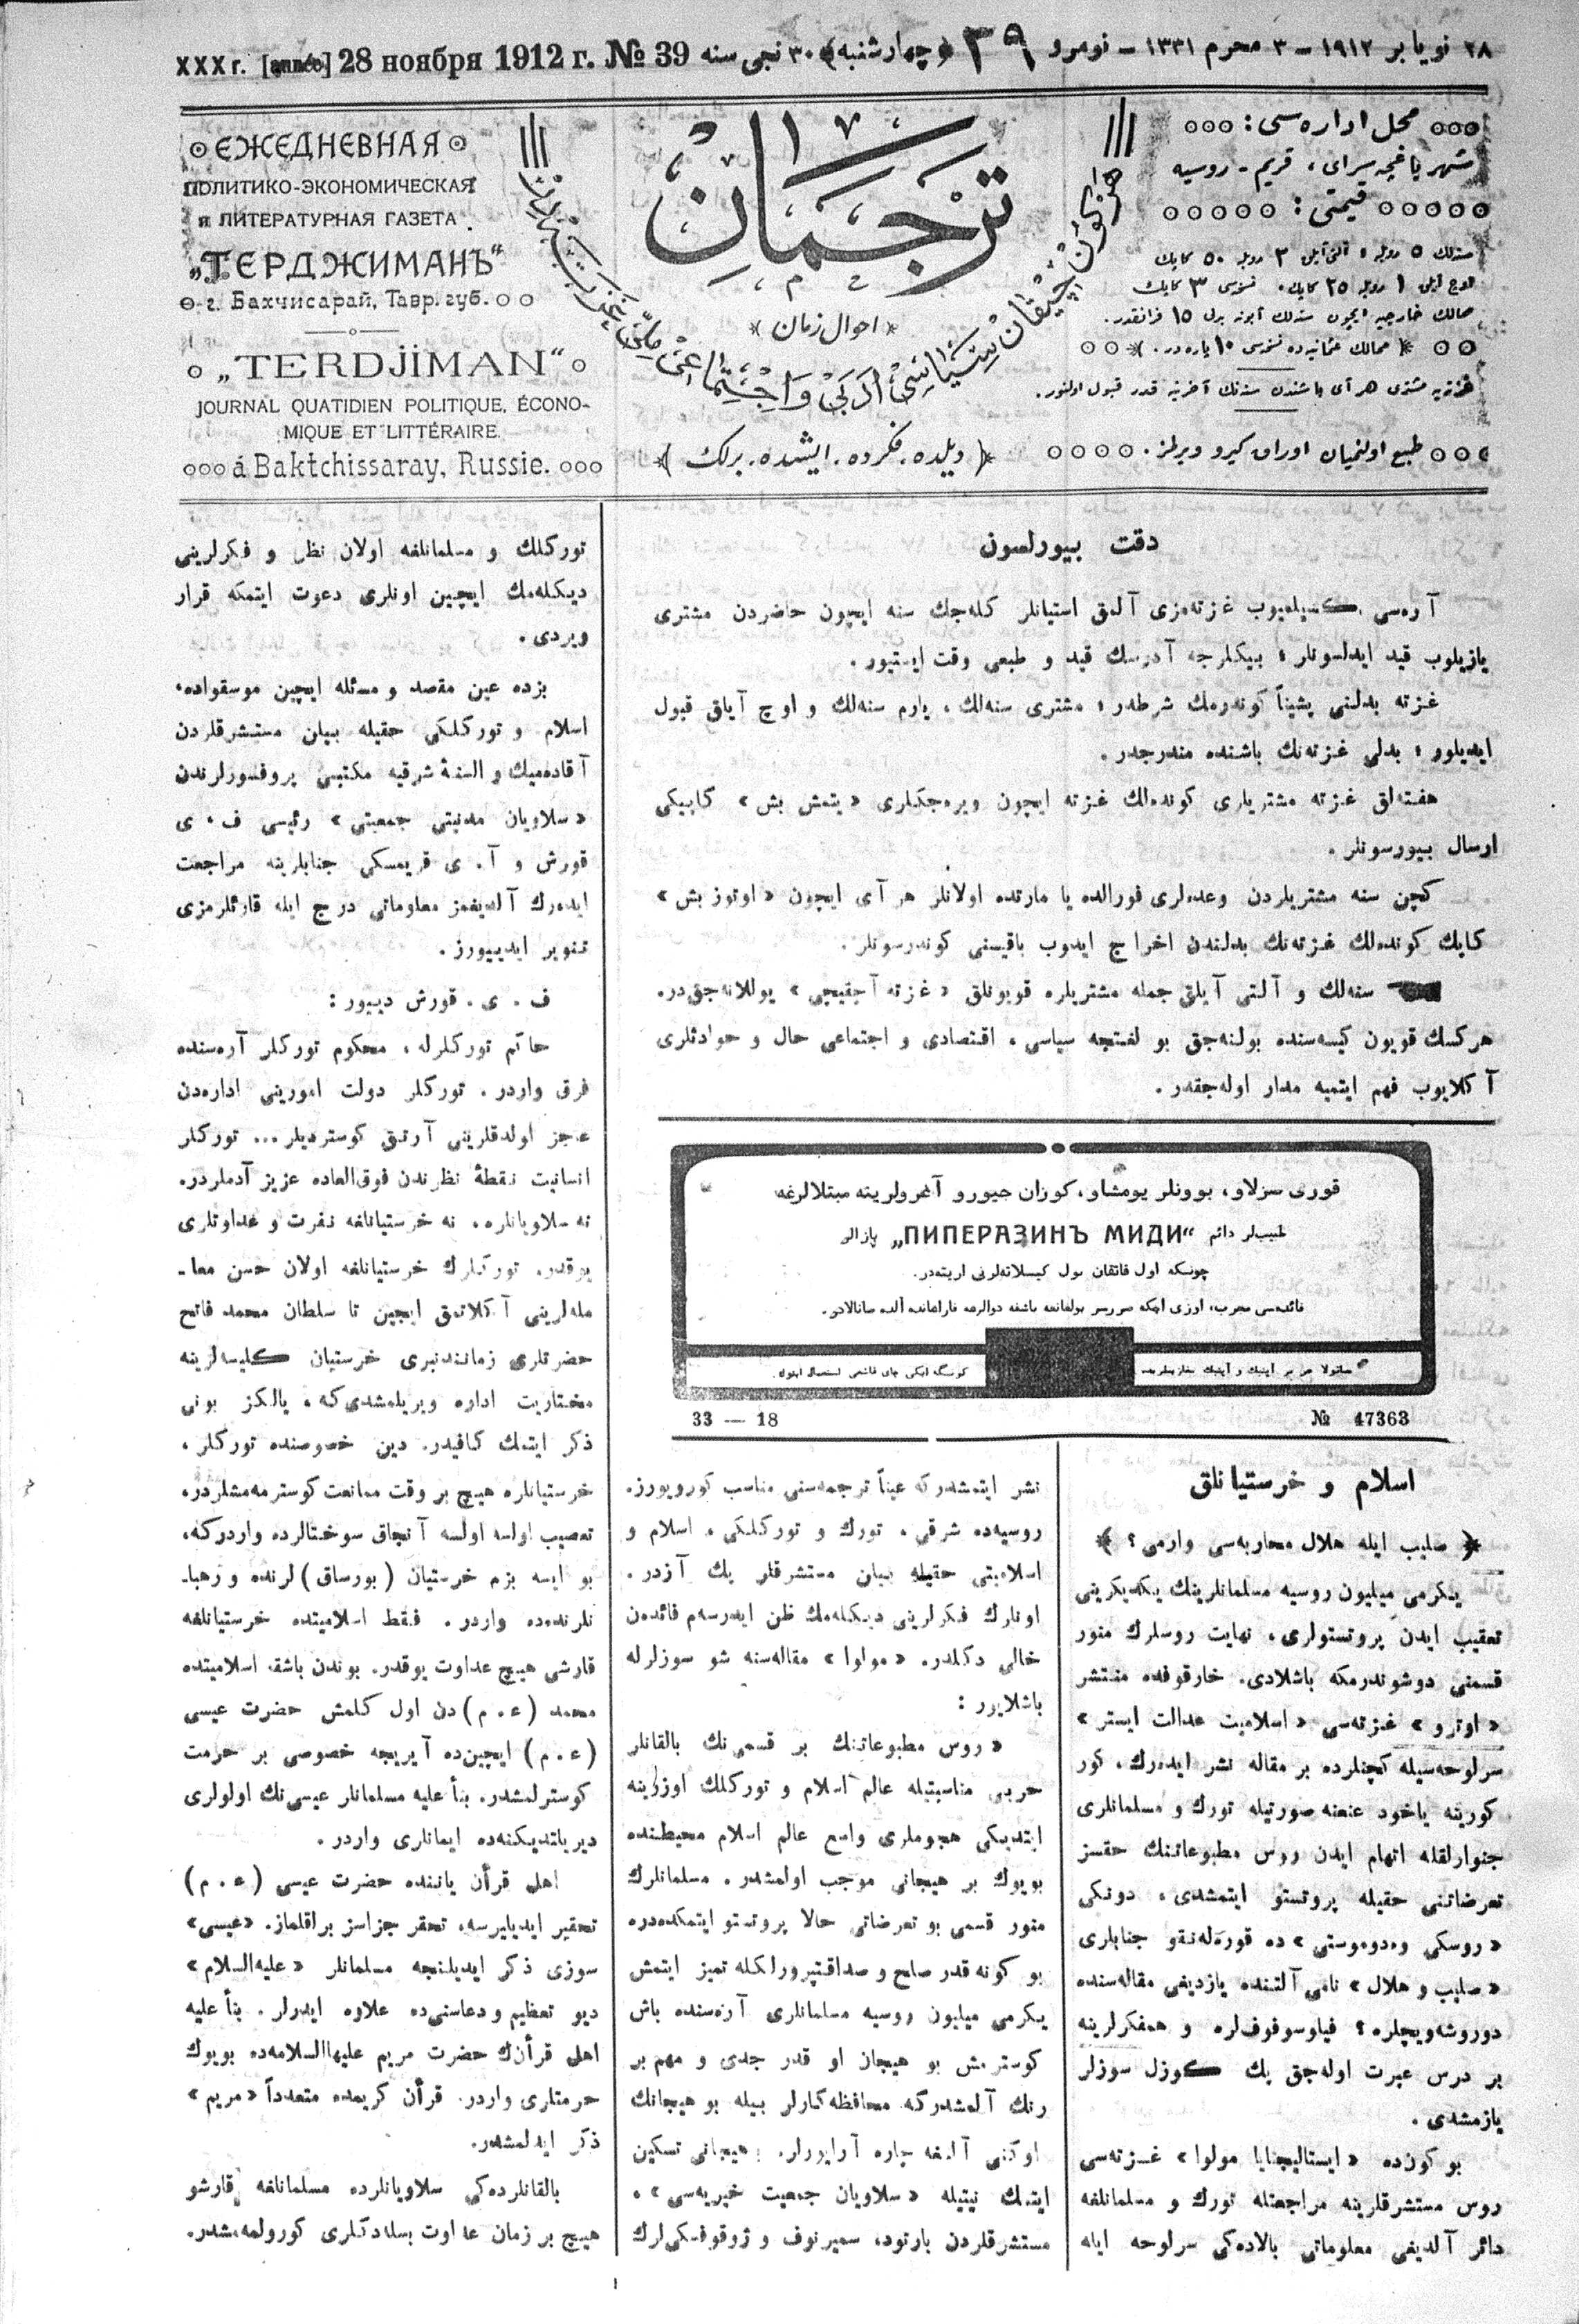 ٢٨ نويابر ١٩١٢ – ٣ محرم ١٣٣١ – نومرو ٣٩ (چهارشنبه) ٣٠ نجی سنه
XXX г. [année] 28 ноября 1912 г. № 39
ЕЖЕДНЕВНАЯ
ПОЛИТИКО-ЭКОНОМИЧЕСКАЯ
и ЛИТЕРАТУРНАЯ ГАЗЕТА
„ТЕРДЖИМАНЪ“
г. Бахчисарай, Тавр. губ.
„TERDJİMAN“
JOURNAL QUATIDIEN POLITIQUE, ÉCONO-
MIQUE ET LITTÉRAIRE.
á Baktchissaray, Russie.
ترجمان
احوال زمان
هر كون چيقان سياسی ادبی و اجتماعی ملی غزته در
(ديلده، فكرده، ايشده، برلك)
محل اداره‌سی:
شهر باغچه سرای، قريم - روسيه
قيمتی:
سنه‌لك ٥ روبله، آلتی آيلق ٣ روبله ٥٠ كاپك
اوچ آيلق ١ روبله ٢٥ كاپك، نسخه‌سی ٣ كاپك
ممالك خارجيه ايچون سنه‌لك آبونه بدلی ١٥ فرانقدر.
ممالك عثمانيه‌ده نسخه‌سی ١٠ پاره‌در.
غزته‌يه مشتری هر آی باشندن سنه‌نك آخرينه قدر قبول اولنور.
طبع اولنميان اوراق كيرو ويرلمز.
دقت بيورلسون
آره‌سی كسيلميوب غزته‌مزی آلمق استيانلر كله‌جك سنه ايچون حاضردن مشتری
يازيلوب قيد ايدلسونلر؛ بيكلرجه آدرسك قيد و طبعی وقت ايستيور.
غزته بدلنی پشيناً كوندرمك شرطدر؛ مشتری سنه‌لك، يارم سنه‌لك و اوچ آيلق قبول
ايديلور؛ بدلی غزته‌نك باشنده مندرجدر.
هفته‌لق غزته مشتريلری كونده‌لك غزته ايچون ويره‌جكلری «يتمش بش» كاپيكی
ارسال بيورسونلر.
كچن سنه مشتريلردن وعده‌لری فورالده يا مارتده اولانلر هر آی ايچون «اوتوز بش»
كاپك كونده‌لك غزته‌نك بدلندن اخراج ايدوب باقيسنی كوندرسونلر.
سنه‌لك و آلتی آيلق جمله مشتريلره قويونلق «غزته آچقيچی» يوللانه‌جق‌در.
هركسك قويون كيسه‌سنده بولنه‌جق بو لغتچه سياسی، اقتصادی و اجتماعی حال و حوادثلری
آكلايوب فهم ايتميه مدار اوله‌جقدر.
قوری سزلاو، بوونلر يومشاو، كوزان جيورو آغرولرينه مبتلالرغه
طبيب‌لر دائم „ПИПЕРАЗИНЪ МИДИ“ يازالر
چونكه اول قاتقان بول كيسلاته‌لرنی اريته‌در.
33 — 18
№ 47363
اسلام و خرستيانلق
﴿ صليب ايله هلال محاربه‌سی وارمی؟ ﴾
يكرمی ميليون روسيه مسلمانلرينك يكديكرينی
تعقيب ايدن پروتستولری، نهايت روسلرك منور
قسمنی دوشوندرمكه باشلادی. خارقوفده منتشر
«اوترو» غزته‌سی «اسلاميت عدالت ايستر»
سرلوحه‌سيله كچنلرده بر مقاله نشر ايده‌رك، كور
كورينه ياخود عنعنه صورتيله تورك و مسلمانلری
جنوارلقله اتهام ايدن روس مطبوعاتنك حقسز
تعرضاتنی حقيله پروتستو ايتمشدی، دونكی
«روسكی وه‌دوموستی» ده قوره‌له‌نقو جنابلری
«صليب و هلال» نامی آلتنده يازديغی مقاله‌سنده
دوروشه‌ويچلره؟ فيلوسوفوف‌لره و همفكرلرينه
بر درس عبرت اوله‌جق پك كوزل سوزلر
يازمشدی.
بو كون‌ده «ايستاليچنايا مولوا» غزته‌سی
روس مستشرقلرينه مراجعتله تورك و مسلمانلغه
دائر آلديغی معلوماتی بالاده‌كی سرلوحه ايله
نشر ايتمشدركه عيناً ترجمه‌سنی مناسب كورويورز.
روسيه‌ده شرقی، تورك و تورك‌لكی، اسلام و
اسلاميتی حقيله بيلن مستشرقلر پك آزدر.
اونلرك فكرلرينی ديكله‌مك ظن ايدرسه‌م فائده‌دن
خالی دكلدر. «مولوا» مقاله‌سنه شو سوزلرله
باشلايور:
«روس مطبوعاتنك بر قسمی‌نك بالقانلر
حربی مناسبتيله عالم اسلام و تورك‌لك اوزرينه
ايتديكی هجوملری واسع عالم اسلام محيطنده
بويوك بر هيجانی موجب اولمشدر. مسلمانلرك
منور قسمی بو تعرضاتی حالا پروتستو ايتمكده‌در.
بو كونه قدر صلح و صداقتپرورلكله تميز ايتمش
يكرمی ميليون روسيه مسلمانلری آره‌سنده باش
كوسترمش بو هيجان او قدر جدی و مهم بر
رنك آلمشدركه محافظه‌كارلر بيله بو هيجانك
اوكنی آلمغه چاره آرايورلر. هيجانی تسكين
ايتمك نيتيله «سلاويان جمعيت خيريه‌سی»،
مستشرقلردن بارتولد، سميرنوف و ژوقوفسكی‌لرك
توركلك و مسلمانلغه اولان نظر و فكرلرينی
ديكله‌مك ايچين اونلری دعوت ايتمكه قرار
ويردی.
بزده عين مقصد و مسئله ايچين موسقواده،
اسلام و توركلكی حقيله بيلن مستشرقلردن
آقاده‌ميك و السنهٔ شرقيه مكتبی پروفسورلرندن
«سلاويان مدنيتی جمعيتی» رئيسی ف. ی
قورش و آ. ی قريمسكی جنابلرينه مراجعت
ايده‌رك آلديغمز معلوماتی درج ايله قارئلرمزی
تنوير ايدييورز.
ف. ی. قورش ديیور:
حاكم توركلرله، محكوم توركلر آره‌سنده
فرق واردر. توركلر دولت امورينی اداره‌دن
عاجز اولدقلرينی آرتق كوسترديلر... توركلر
انسانيت نقطهٔ نظرندن فوق‌العاده عزيز آدملردر.
نه سلاويانلره، نه خرستيانلغه نفرت و عداوتلری
يوقدر. توركلرك خرستيانلغه اولان حسن معا-
مله‌لرينی آكلاتمق ايچين تا سلطان محمد فاتح
حضرتلری زمانندنبری خرستيان كليسه‌لرينه
مختاريت اداره ويريلمشدی‌كه، يالكز بونی
ذكر ايتمك كافيدر. دين خصوصنده توركلر،
خرستيانلره هيچ بر وقت ممانعت كوسترمه‌مشلردر.
تعصب اولسه اولسه آنجاق سوختالرده واردركه،
بو ايسه بزم خرستيان (بورساق)لرنده و رهبا-
نلرنده‌ده واردر. فقط اسلاميتده خرستيانلغه
قارشی هيچ عداوت يوقدر. بوندن باشقه اسلاميتده
محمد (ع. م) دن اول كلمش حضرت عيسی
(ع. م) ايچين‌ده آيريجه خصوصی بر حرمت
كوسترلمشدر. بنأ عليه مسلمانلر عيسی‌نك اولولری
ديريلتديكنه‌ده ايمانلری واردر.
اهل قرأن ياننده حضرت عيسی (ع. م)
تحقير ايديليرسه، تحقر جزاسز براقلماز. «عيسی»
سوزی ذكر ايديلنجه مسلمانلر «عليه‌السلام»
ديو تعظيم و دعاسنی‌ده علاوه ايدرلر. بنأ عليه
اهل قرأن‌ك حضرت مريم عليهاالسلامه‌ده بويوك
حرمتلری واردر. قرأن كريمده متعدداً «مريم»
ذكر ايدلمشدر.
بالقانلرده‌كی سلاويانلرده مسلمانلغه قارشو
هيچ بر زمان عداوت بسله‌دكلری كورولمه‌مشدر.